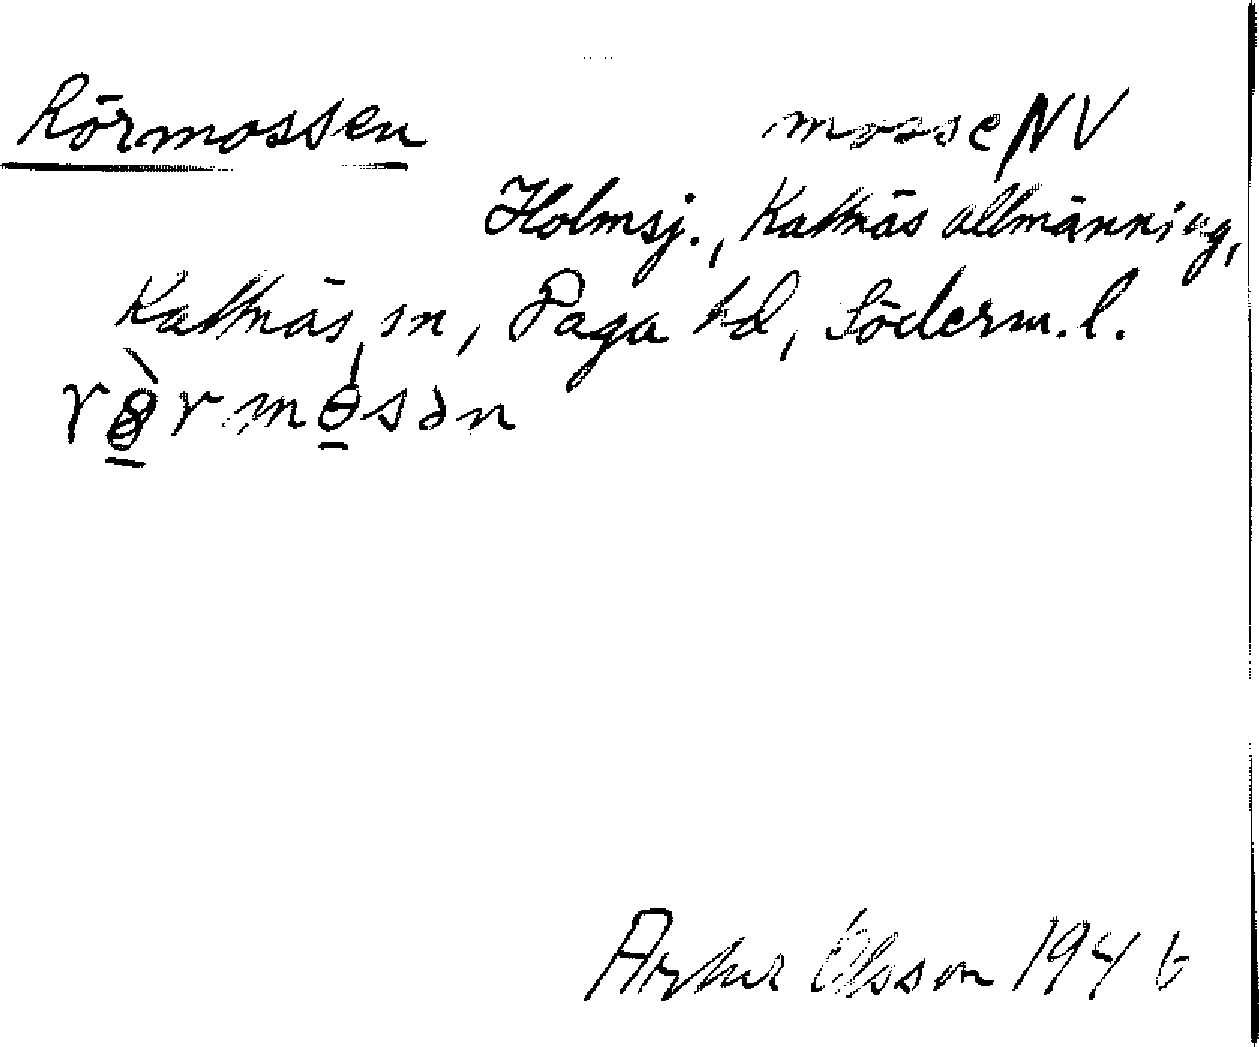 Rörmossen mosse NV
Holmsj., Kattnäs allmänning,
Kattnäs sn, Daga hd, Söderm. l.
rø̀rmósən
Arthur Olsson 1946